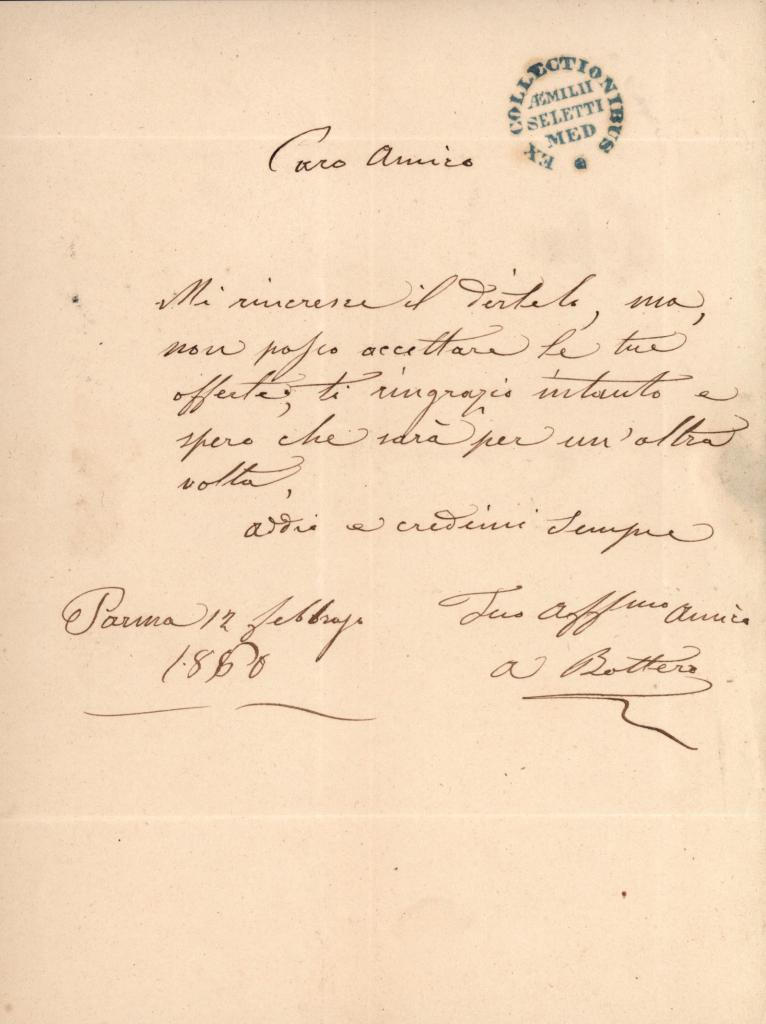 EX COLLECTIONIBUS
ÆMILII
SELETTI
MED
Caro Amico
Mi rincresce il dirtelo, ma,
non posso accettare le tue
offerte, ti ringrazio intanto e
spero che sarà per un'altra
volta,
addio e credimi sempre
Parma 12 febbrajo
1860
Tuo Affmo Amico
A Bottero